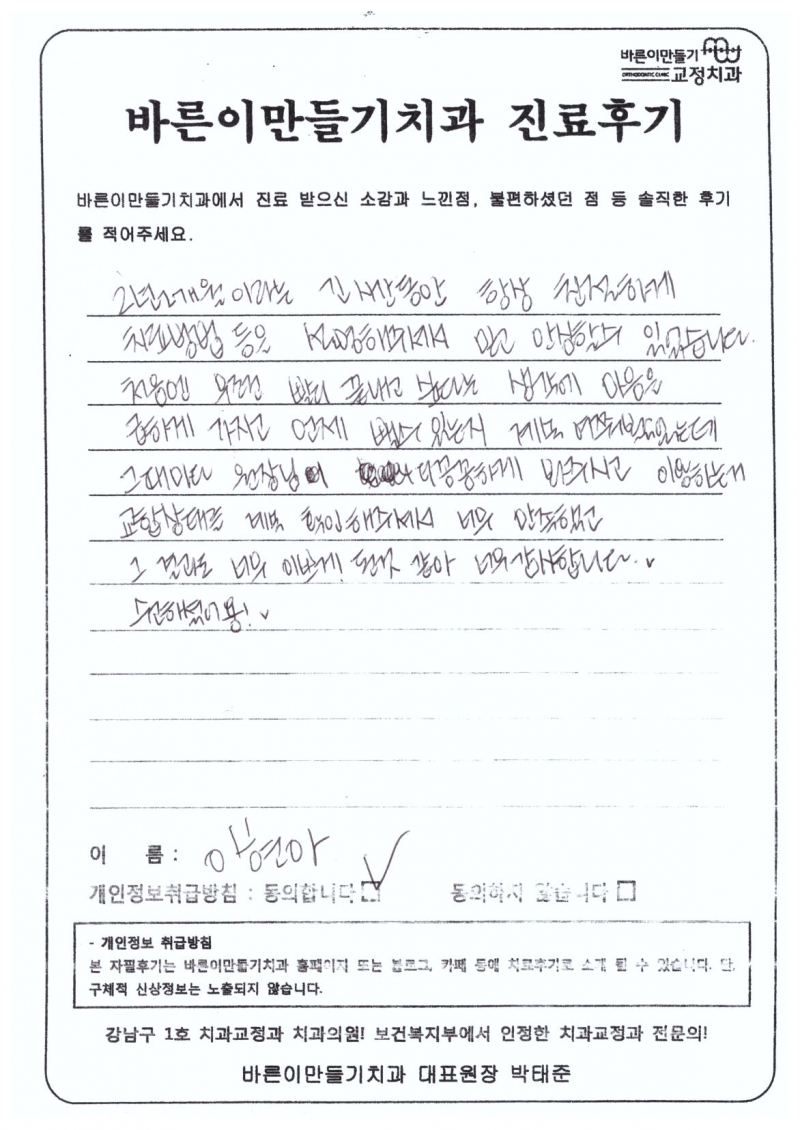 바른이만들기
ORTHODONTIC CLINIC 교정치과
바른이만들기치과 진료후기
바른이만들기치과에서 진료 받으신 소감과 느낀점, 불편하셨던 점 등 솔직한 후기
를 적어주세요.
2년2개월이라는 긴 시간동안 항상 친절하게
치료방법 등을 설명해주셔서 믿고 안심할수 있었습니다.
처음엔 무조건 빨리 끝내고 싶다는 생각에 마음을
급하게 가지고 언제 뺄수 있는지 계속 여쭤봤었는데
그때마다 원장님이 더 꼼꼼하게 봐주시고 이용하는데
교합상태를 계속 확인해주셔서 너무 만족했고
그 결과도 너무 이쁘게 된것 같아 너무 감사합니다.
수고하셨어용!
이 름 : 현아
개인정보취급방침 : 동의합니다 동의하지 않습니다
- 개인정보 취급방침
본 자필후기는 바른이만들기치과 홈페이지 또는 블로그, 카페 등에 치료후기로 소개 될 수 있습니다. 단,
구체적 신상정보는 노출되지 않습니다.
강남구 1호 치과교정과 치과의원! 보건복지부에서 인정한 치과교정과 전문의!
바른이만들기치과 대표원장 박태준